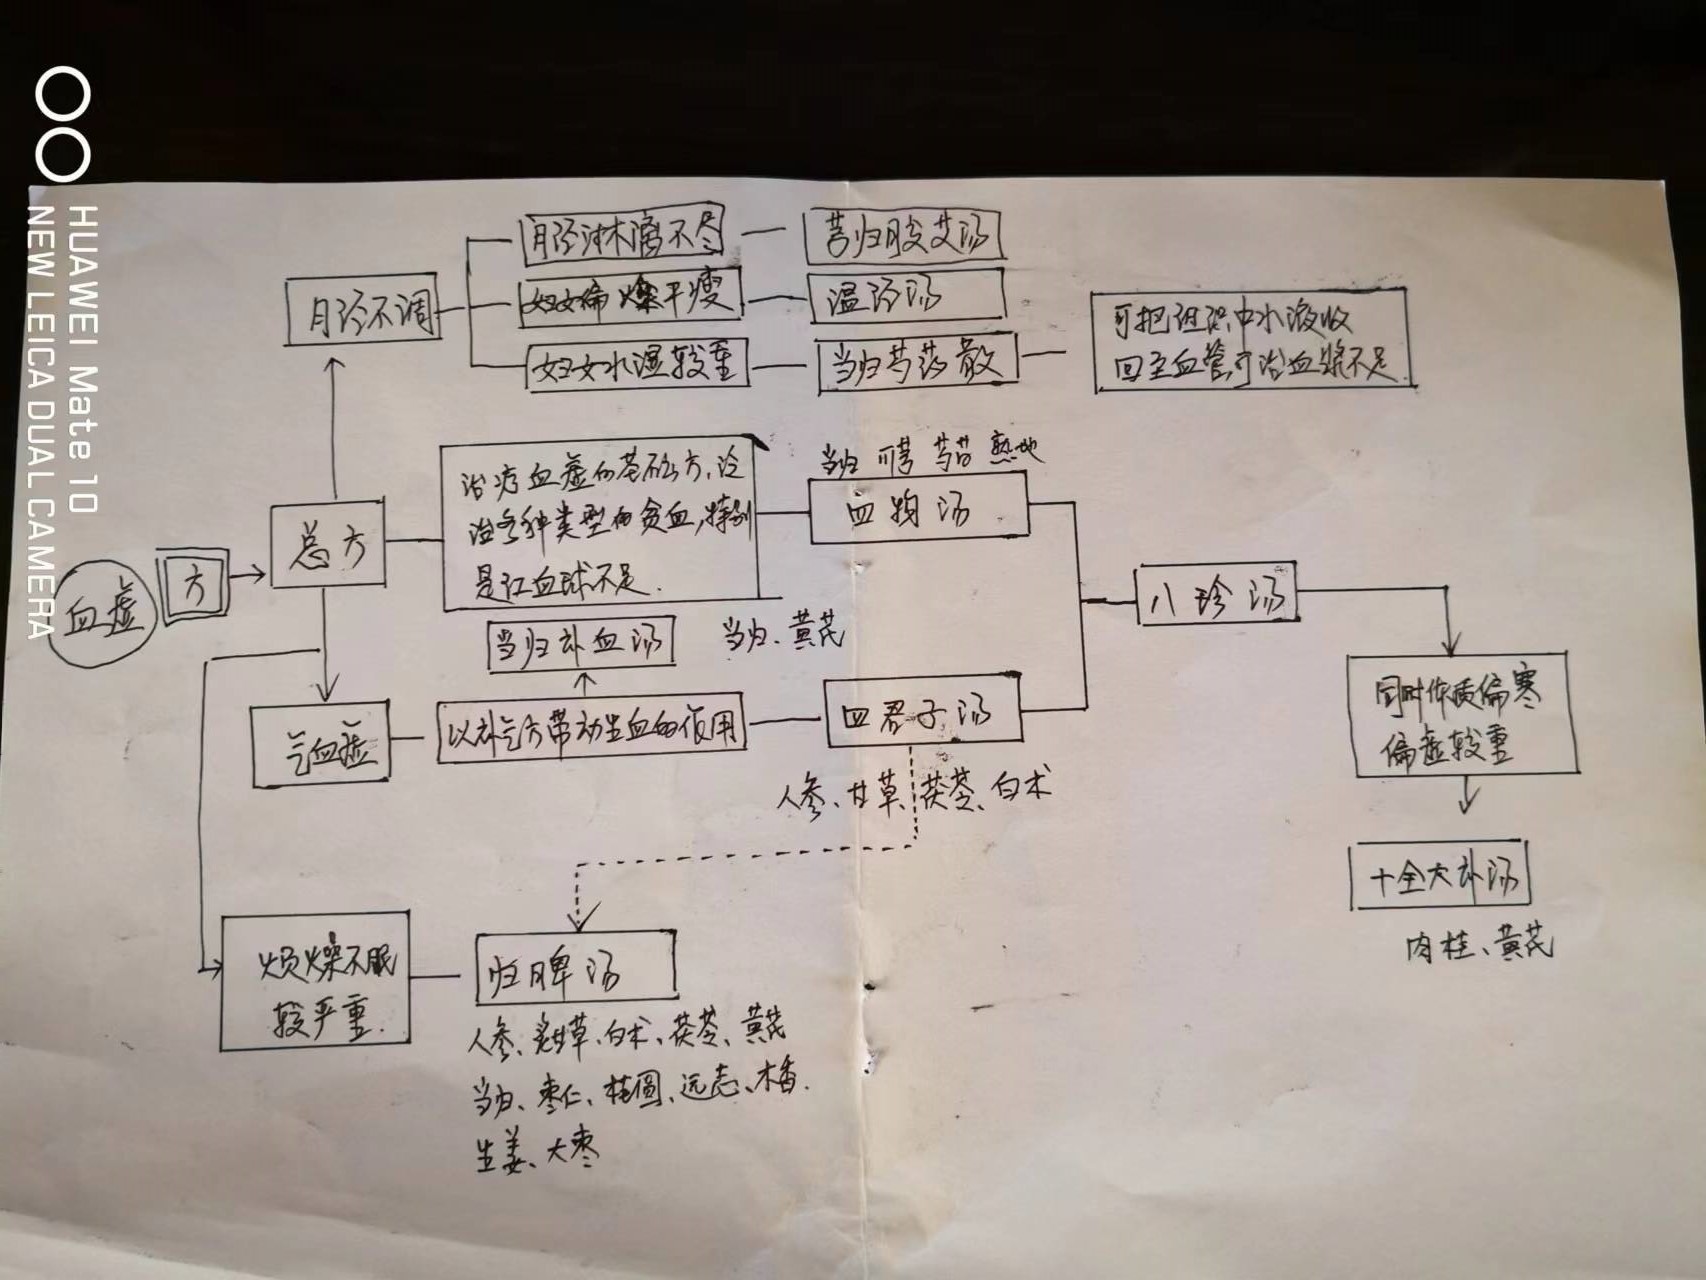 HUAWEI Mate 10
NEW LEICA DUAL CAMERA
月经淋漓不尽
芎归胶艾汤
月经不调
妇女偏燥干瘦
温经汤
妇女水湿较重
当归芍药散
可把组织中水液收
回至血管,可治血浆不足
当归 川芎 芍 熟地
治疗血虚的基础方,
治各种类型的贫血,特别
是红血球不足.
四物汤
总方
血虚
方
八珍汤
当归补血汤
当归、黄芪
气血虚
以补气方带动生血的作用
四君子汤
同时体质偏寒
偏虚较重
人参、甘草、茯苓、白术
十全大补汤
肉桂、黄芪
烦燥不眠
较严重.
归脾汤
人参、炙甘草、白术、茯苓、黄芪
当归、枣仁、桂圆、远志、木香.
生姜、大枣